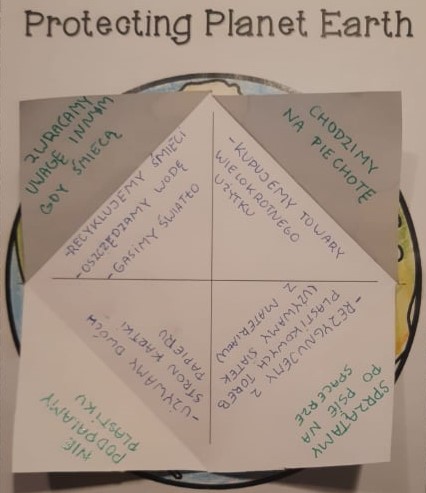 Protecting Planet Earth
ZWRACAMY
UWAGĘ INNYM
GDY ŚMIECĄ
CHODZIMY
NA PIECHOTĘ
-RECYKLUJEMY ŚMIECI
-OSZCZĘDZAMY WODĘ
- GASIMY ŚWIATŁO
-KUPUJEMY TOWARY
WIELOKROTNEGO
UŻYTKU
-UŻYWAMY DWÓCH
STRON KARTKI
PAPIERU
-REZYGNUJEMY Z
PLASTIKOWYCH TOREB
(UŻYWAMY SIATEK
Z MATERIAŁÓW)
NIE
PODPALAMY
PLASTIKU
SPRZĄTAMY
PO PSIE NA
SPACERZE